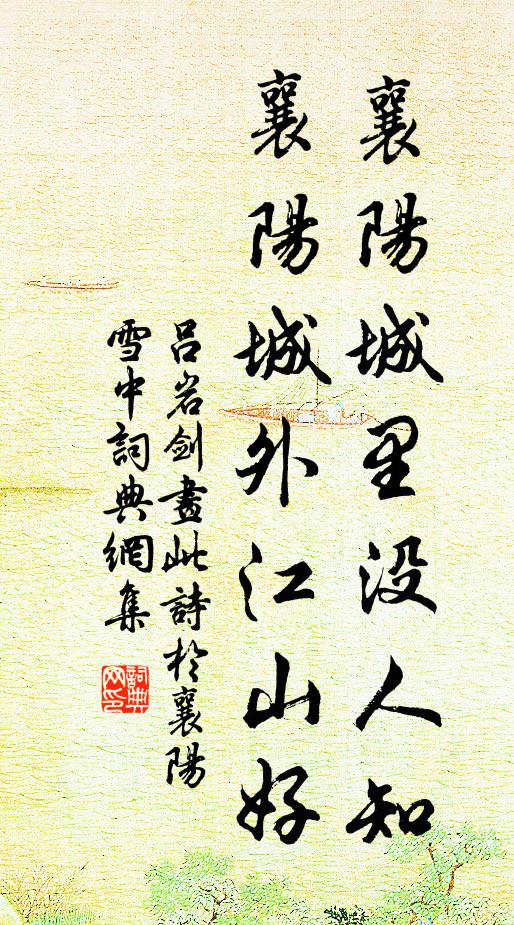 襄陽城里没人知
襄陽城外江山好
吕岩劍畫此詩於襄陽
雪中詞典網集
詞典网印